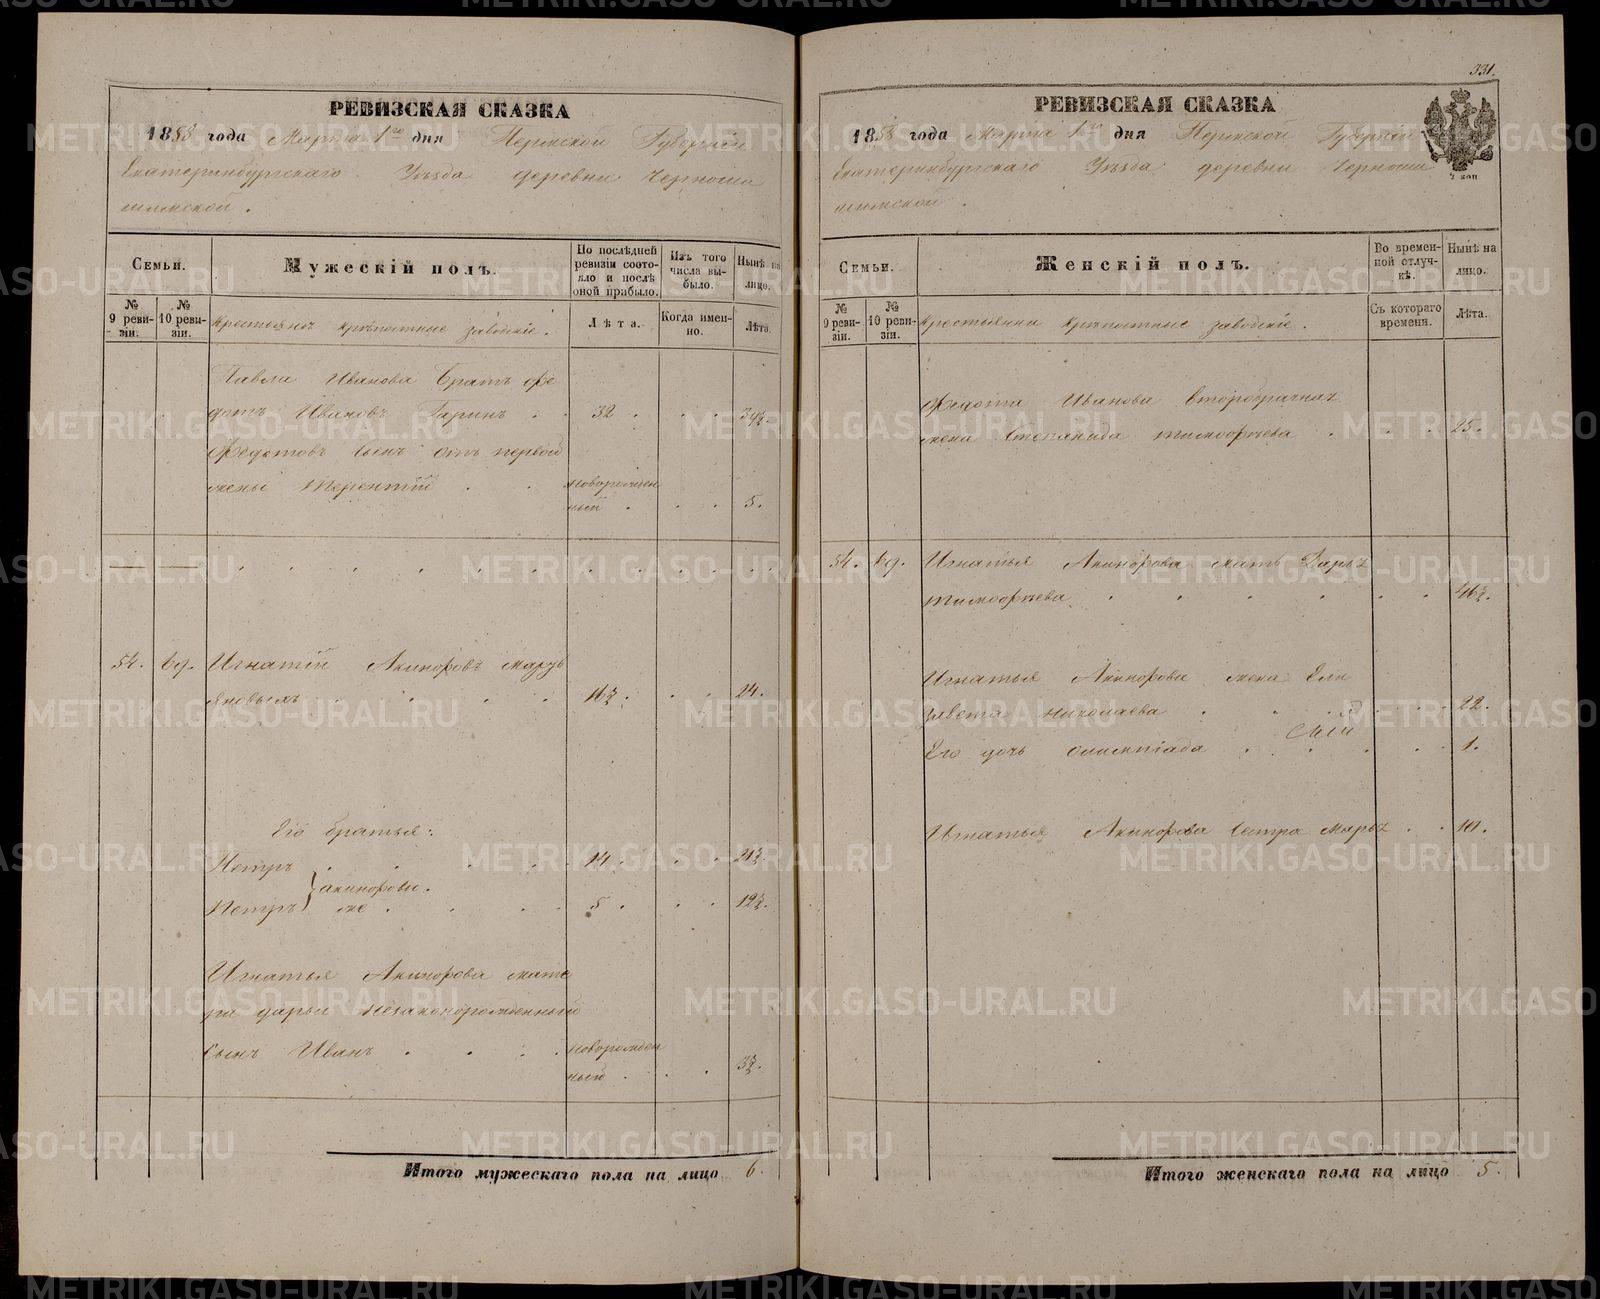 РЕВИЗСКАЯ СКАЗКА
1858 года Марта 1го дня Пермской Губерніи
Екатеринбургскаго Уѣзда деревни Черноши
шимской.
Семьи.
Мужескій полъ.
По послѣдней
ревизіи состо-
яло и послѣ
оной прибыло.
Изъ того
числа вы-
было.
Нынѣ на
лицо.
№
9 реви-
зіи.
№
10 реви-
зіи.
крестьянъ крѣпостные заводскіе.
Лѣта.
Когда имен-
но.
Лѣта.
Павла Иванова братъ Фе
дотъ Ивановъ Гаринъ 32
Федотовъ сынъ отъ первой
жены Терентій новорожден
ный 5.
54. Игнатій
16½. 24.
Его братья:
Петръ 14.
Петръ же 5.
Игнатья мате
ри Дарьи незаконорожденный
сынъ Иванъ новорожден
ный 3½.
Итого мужескаго пола на лицо 6.
331.
РЕВИЗСКАЯ СКАЗКА
1858 года Марта 1го дня Пермской Губерніи
Екатеринбургскаго Уѣзда деревни Черноши
шимской.
2 коп
Семьи.
Женскій полъ.
Во времен-
ной отлуч-
кѣ.
Нынѣ на
лицо.
№
9 реви-
зіи.
№
10 реви-
зіи.
крестьянки крѣпостные заводскіе.
Съ котораго
времени.
Лѣта.
Федота Иванова второбрачная
жена Степанида Тимофѣева 25.
54. Игнатья мать Дарья
Тимофѣева 46½.
Игнатья жена Ели
завета Николаева 22.
Его дочь Олимпіада 1.
Игнатья сестра Марья
Итого женскаго пола на лицо 5.
METRIKI.GASO-URAL.RU